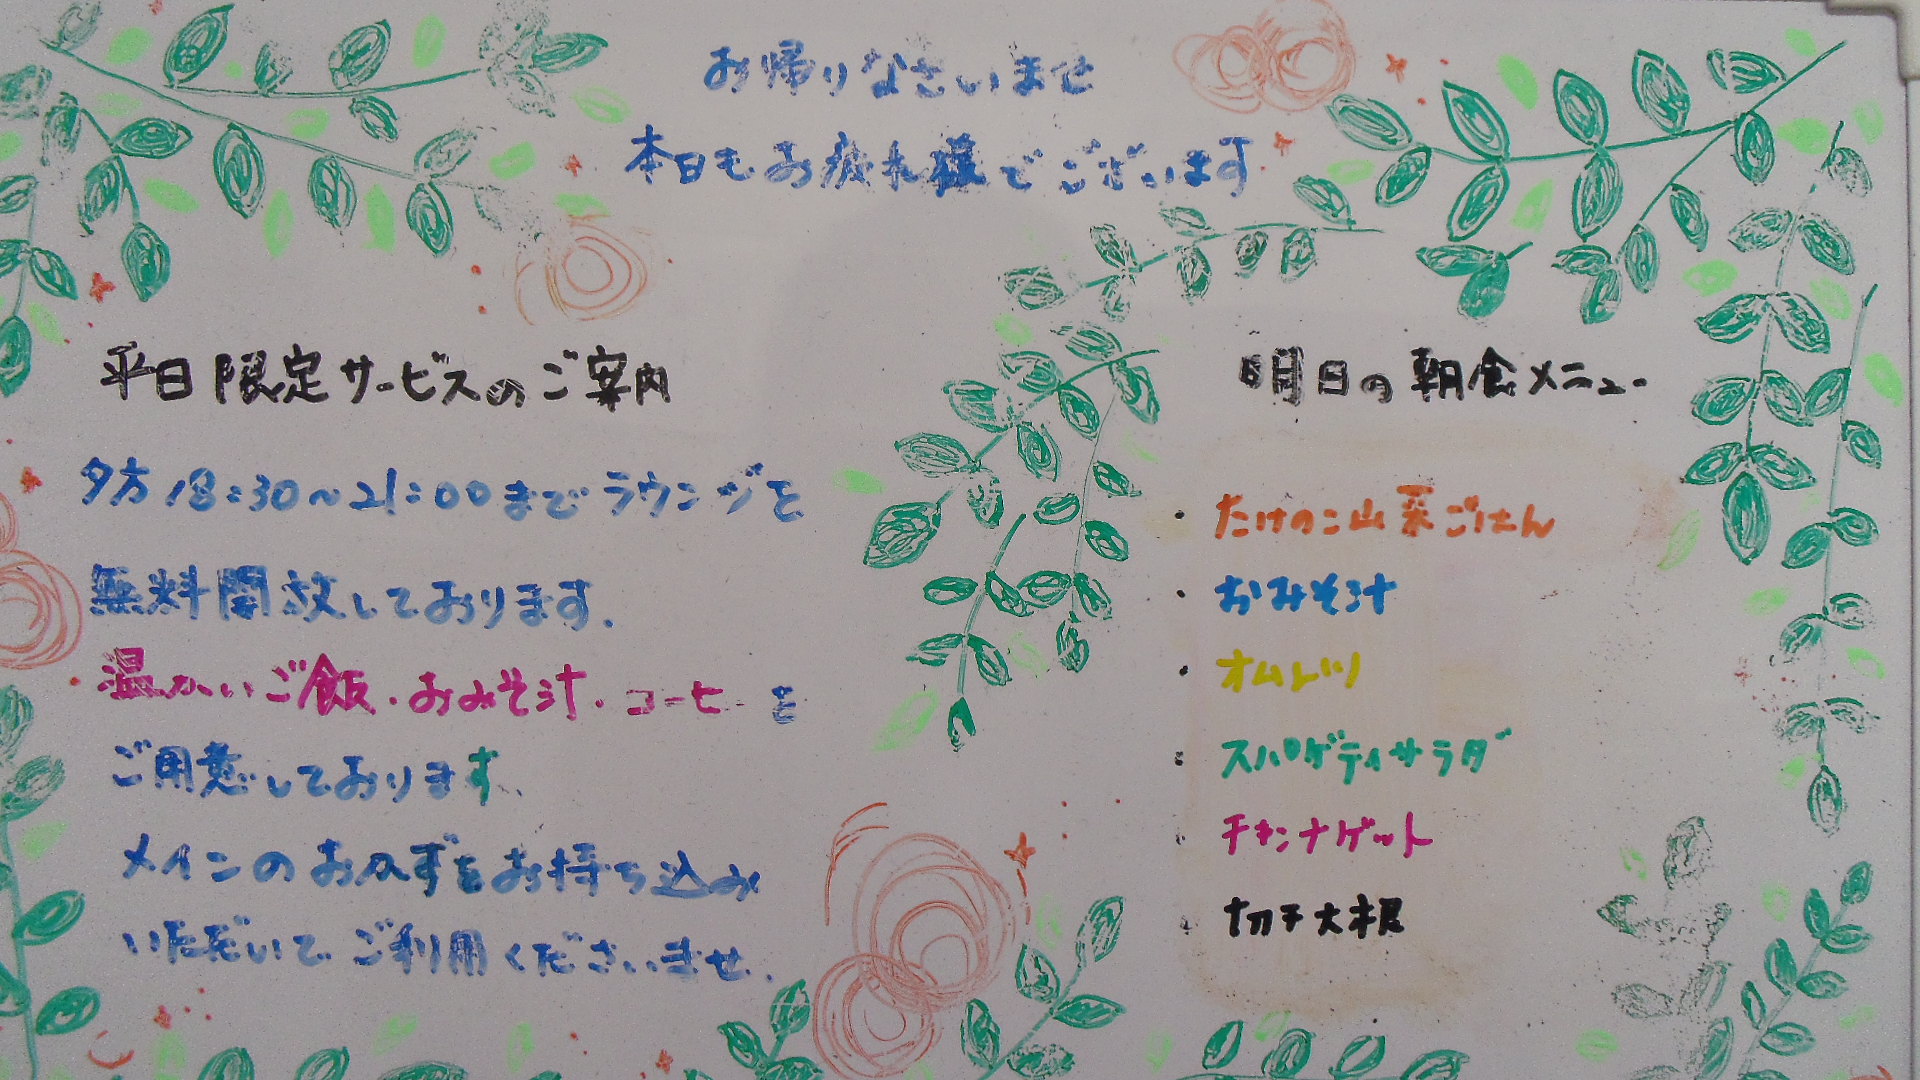 お帰りなさいませ
本日もお疲れ様でございます
平日限定サービスのご案内
夕方18:30～21:00までラウンジを
無料開放しております.
温かいご飯・おみそ汁・コーヒーを
ご用意しております.
メインのおかずをお持ち込み
いただいてご利用くださいませ.
明日の朝食メニュー
・たけのこ山菜ごはん
・おみそ汁
・オムレツ
・スパゲティサラダ
・チキンナゲット
・切干大根